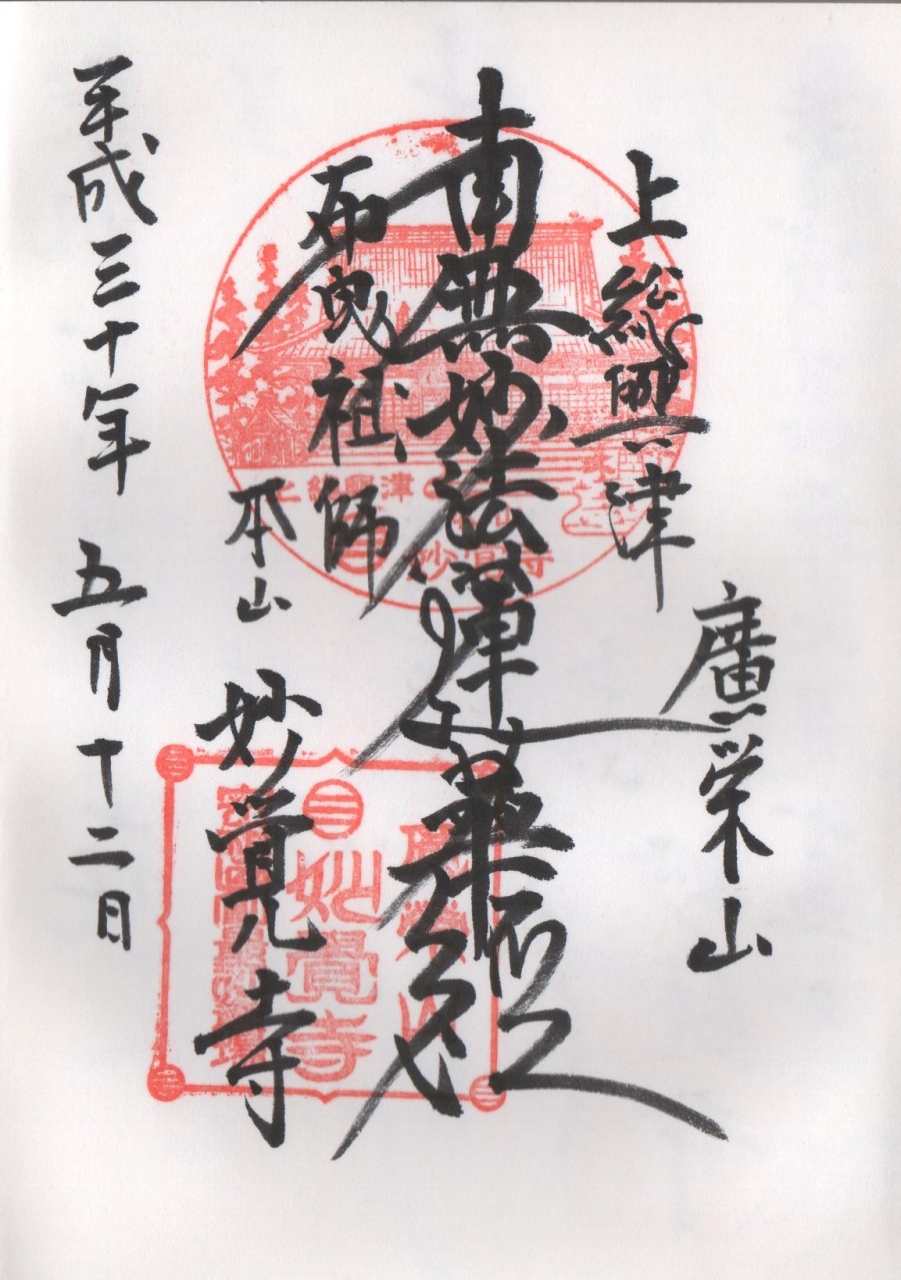 上総興津
廣栄山
南無妙法蓮華経
布曳祖師
本山
妙覚寺
平成三十年 五月十二日
上総興津
妙覺寺